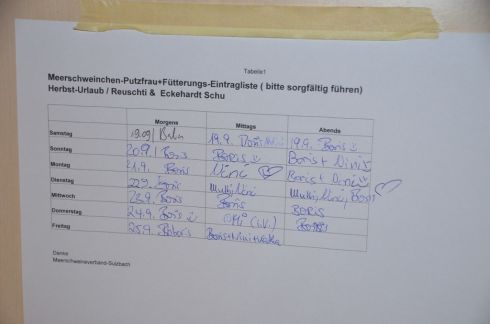 Tabelle1
Meerschweinchen-Putzfrau+Fütterungs-Eintragliste ( bitte sorgfältig führen)
Herbst-Urlaub / Reuschti & Eckehardt Schu
Morgens Mittags Abends
Samstag 19.09/ 19.9. 19.9. Boris
Sonntag 20.9./ Boris BORIS Boris + Nini
Montag 21.9. Boris Nini Boris + Nini
Dienstag 22.9. Boris Mutti, Nini Mutti, Nini, Boris
Mittwoch 23.9. Boris Boris BORIS
Donnerstag 24.9. Boris OMI (i.V.) Boris
Freitag 25.9. Boris+Nini+
Danke
Meerschweinsverband-Sulzbach